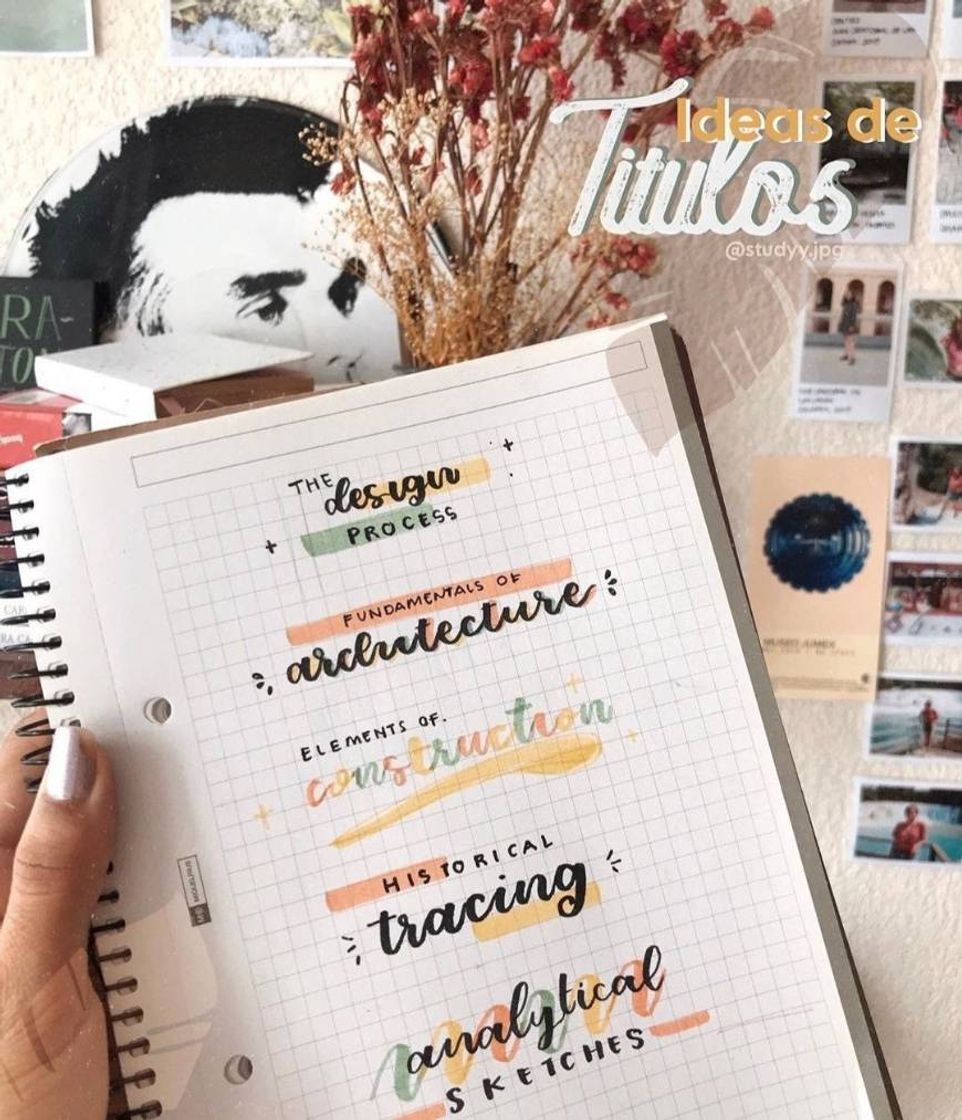 Ideas de
Titulos
@studyy.jpg
RA-
TO
THE
design
PROCESS
FUNDAMENTALS OF
architecture
ELEMENTS OF.
construction
HISTORICAL
tracing
analytical
SKETCHES
MUSEO JUMEX